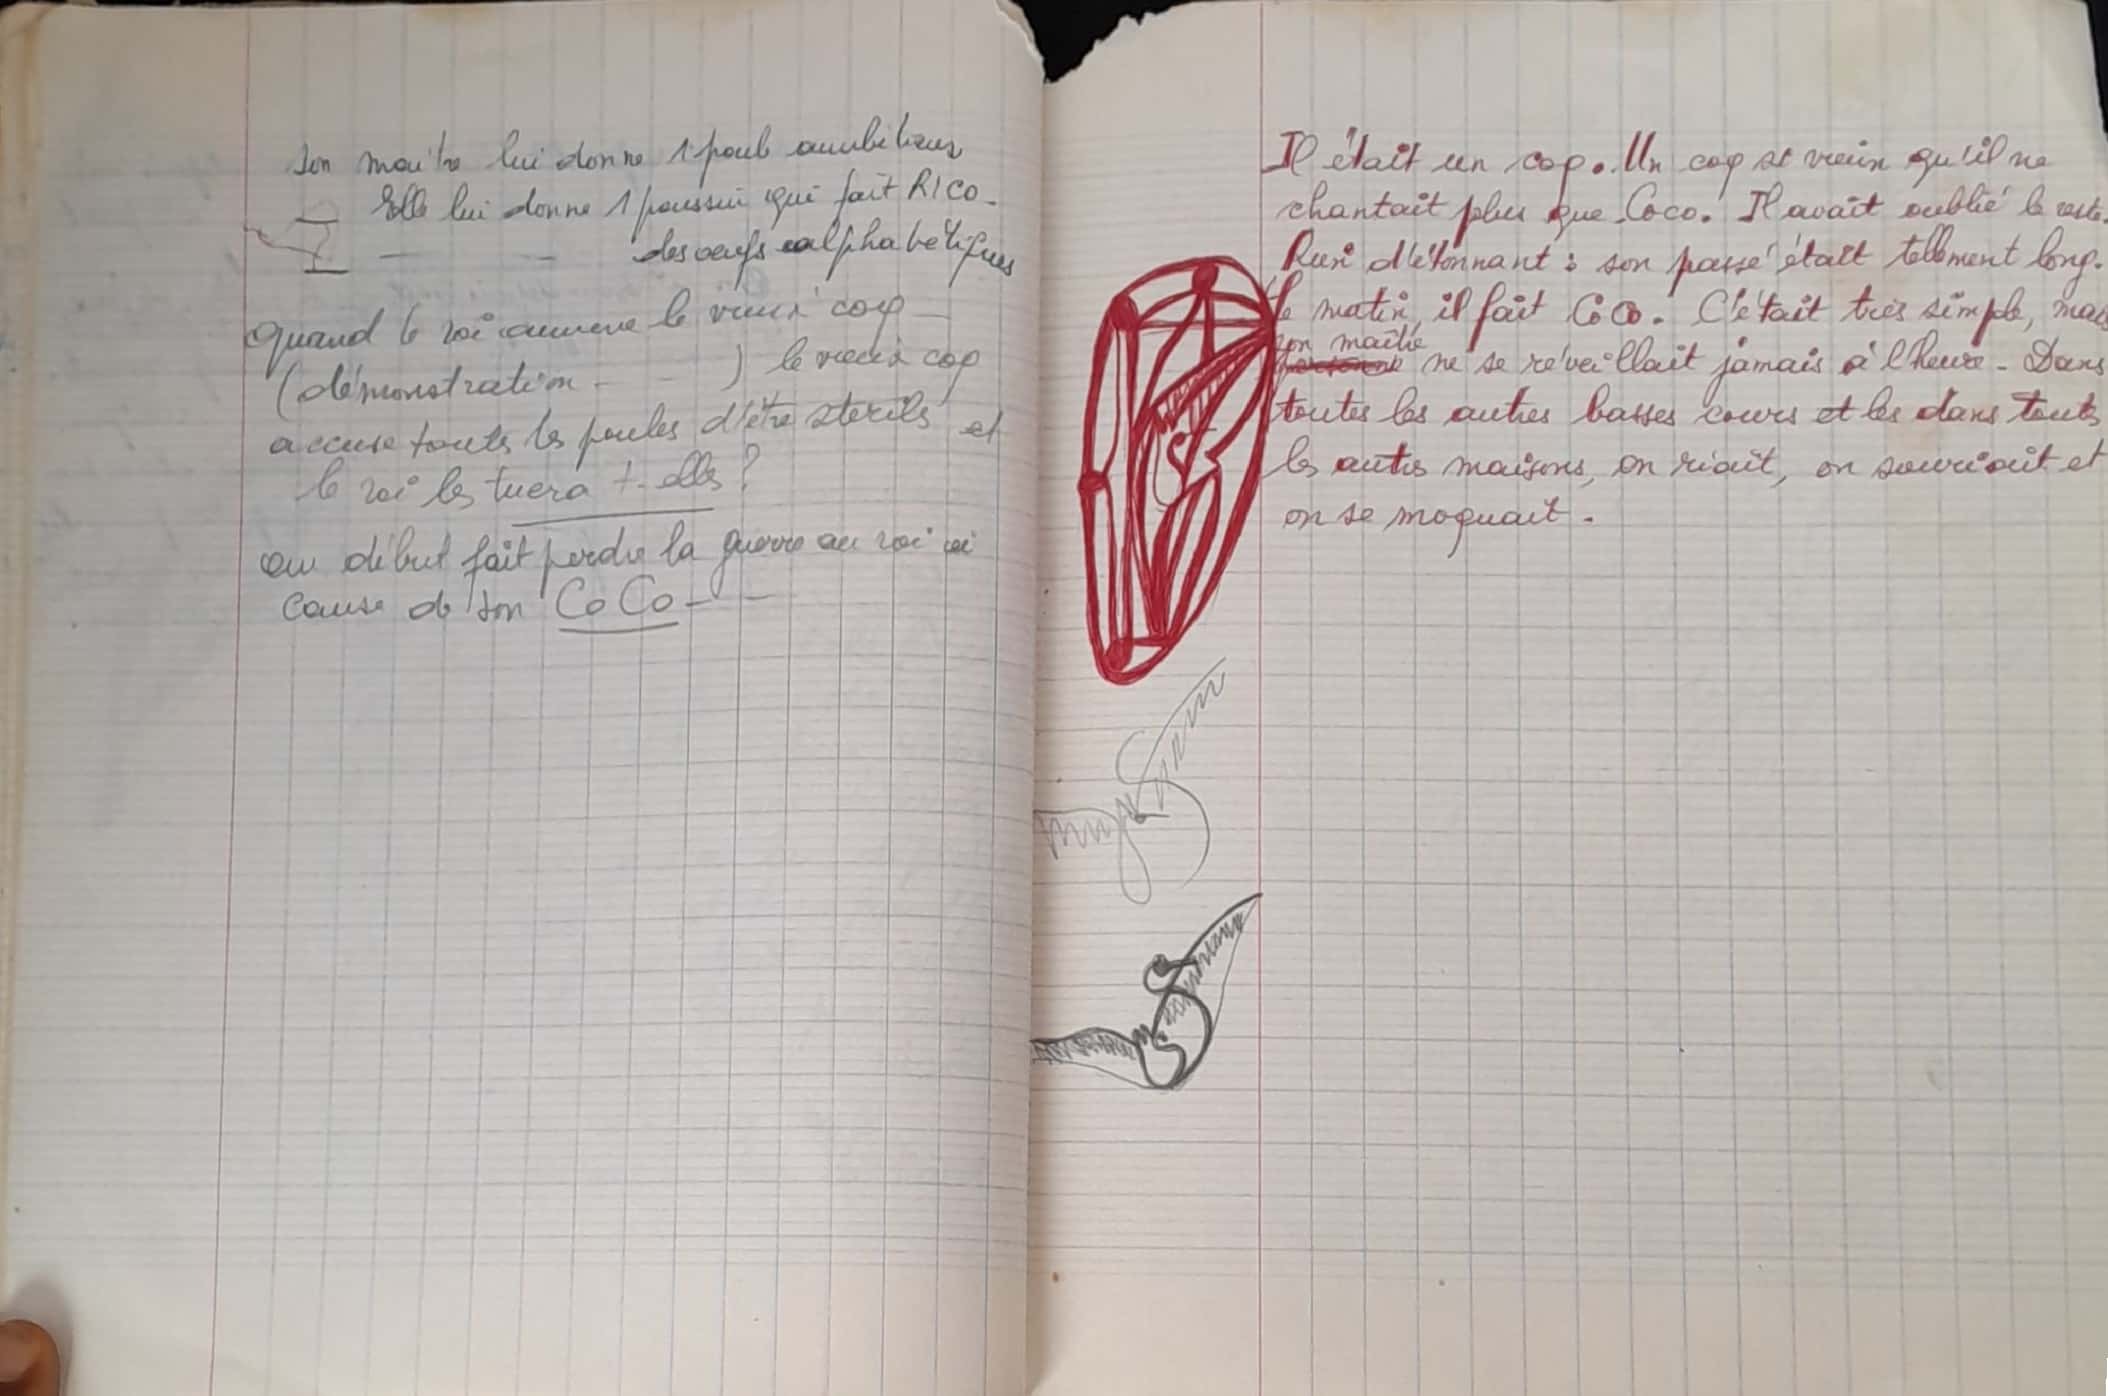 son maître lui donne 1 poule ambitieux
— Elle lui donne 1 poussin qui fait RICO.
— — — des oeufs alphabétiques
quand le roi amène le vieux coq —
(démonstration - - - ) le vieux coq
accuse toutes les poules d'être sterils et
le roi les tuera t-elles ?
au début fait perdre la guerre au roi à
cause de son CoCo - - -
Il était un coq. Un coq si vieux qu'il ne
chantait plus que Coco. Il avait oublié le reste.
Rien d'étonnant : son passé était tellement long.
le matin, il fait CoCo. C'était très simple, mais
son maître
personne ne se réveillait jamais à l'heure. Dans
toutes les autres basses cours et les dans toutes
les autres maisons, on riait, on souriait et
on se moquait.